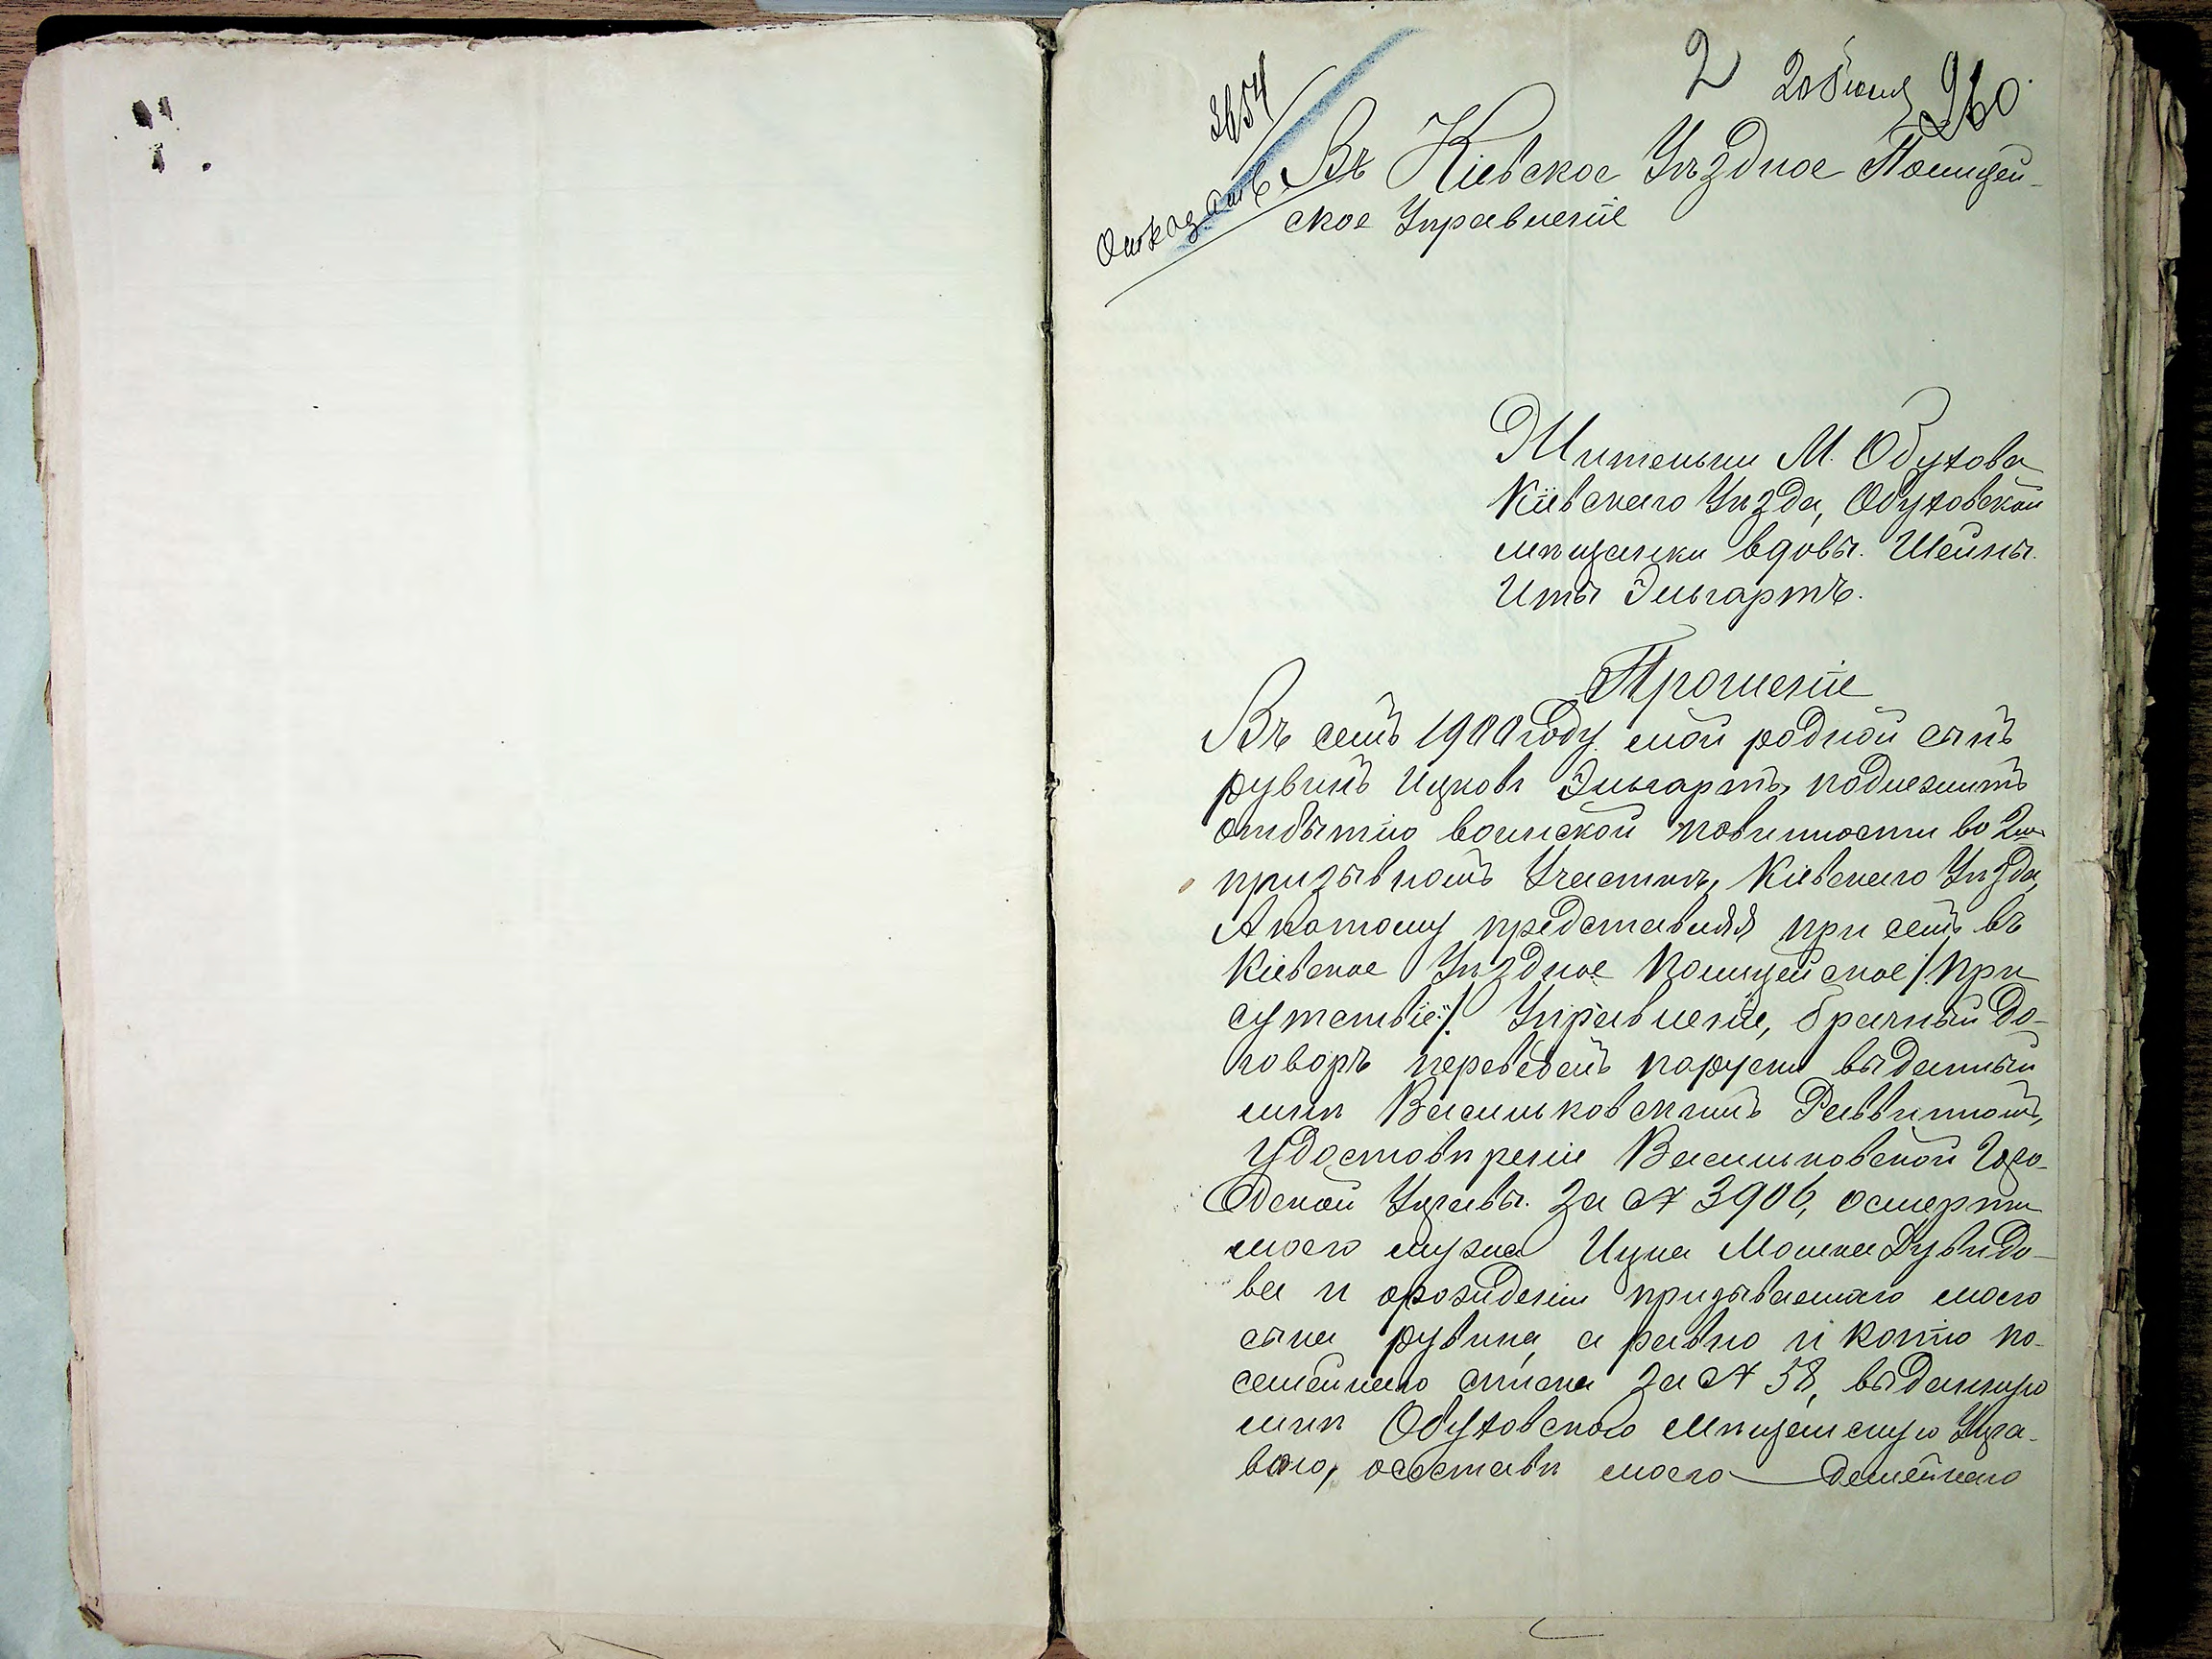 2
20 Июня 960.
3654
Отказать
Въ Кіевское Уѣздное Полицей-
ское Управленіе
Жительки М. Обухова
Кіевскаго Уѣзда, Обуховской
мѣщанки вдовы. Шейны.
Иты Эльгартъ.
Прошеніе
Въ семъ 1900 году мой родной сынъ
рувинъ Ицковъ Эльгартъ, подлежитъ
отбытію воинской повинности во 2мъ
призывномъ Участкѣ, Кіевскаго Уѣзда,
А потому представляя при семъ въ
Кіевское Уѣздное Полицейское /:При
сутствіе:/ Управленіе, брачный до-
говоръ переведенъ порусски выданный
мнѣ Васильковскимъ Раввиномъ,
Удостовѣреніе Васильковской Горо-
дской Управы. За № 3906, осмерти
моего мужа Ицка Мошка Дувидо-
ва и орожденіи призываемаго моего
сына рувина, а равно и копію по-
семейнаго списка за № 58, выданную
мнѣ Обуховского Мѣщанскую Упра-
вою, осоставѣ моего семейнаго